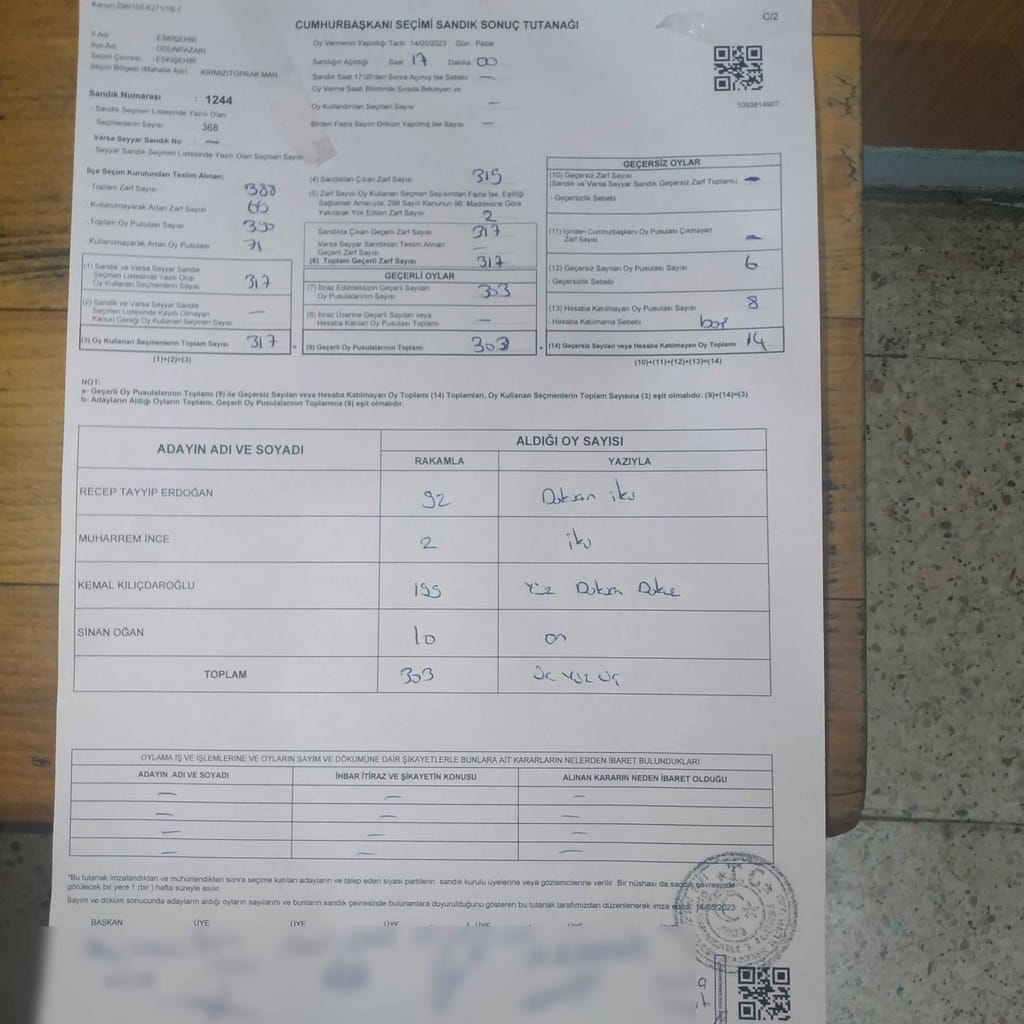 Kanun:298/105,6271/16-1
C/2
CUMHURBAŞKANI SEÇİMİ SANDIK SONUÇ TUTANAĞI
İl Adı : ESKİŞEHİR
İlçe Adı : ODUNPAZARI
Seçim Çevresi : ESKİŞEHİR
Seçim Bölgesi (Mahalle Adı) KIRMIZITOPRAK MAH.
Sandık Numarası : 1244
- Sandık Seçmen Listesinde Yazılı Olan
Seçmenlerin Sayısı 368
Varsa Seyyar Sandık No : —
- Seyyar Sandık Seçmen Listesinde Yazılı Olan Seçmen Sayısı
Oy Vermenin Yapıldığı Tarih 14/05/2023 Gün Pazar
Sandığın Açıldığı Saat 17 Dakika 00
Sandık Saat 17:00'den Sonra Açılmış İse Sebebi —
Oy Verme Saati Bitiminde Sırada Bekleyen ve
Oy Kullandırılan Seçmen Sayısı —
Birden Fazla Sayım Döküm Yapılmış İse Sayısı —
1093814907
İlçe Seçim Kurulundan Teslim Alınan;
- Toplam Zarf Sayısı
- Kullanılmayarak Artan Zarf Sayısı
- Toplam Oy Pusulası Sayısı
- Kullanılmayarak Artan Oy Pusulası 71
(1) Sandık ve Varsa Seyyar Sandık
Seçmen Listesinde Yazılı Olup
Oy Kullanan Seçmenlerin Sayısı 317
(2) Sandık ve Varsa Seyyar Sandık
Seçmen Listesinde Kayıtlı Olmayan
Kanun Gereği Oy Kullanan Seçmen Sayısı —
(3) Oy Kullanan Seçmenlerin Toplam Sayısı 317
(1)+(2)=(3)
(4) Sandıktan Çıkan Zarf Sayısı 319
(5) Zarf Sayısı Oy Kullanan Seçmen Sayısından Fazla İse, Eşitliği
Sağlamak Amacıyla, 298 Sayılı Kanunun 98. Maddesine Göre
Yakılarak Yok Edilen Zarf Sayısı 2
Sandıkta Çıkan Geçerli Zarf Sayısı 317
Varsa Seyyar Sandıktan Teslim Alınan
Geçerli Zarf Sayısı —
(6) Toplam Geçerli Zarf Sayısı 317
GEÇERLİ OYLAR
(7) İtiraz Edilmeksizin Geçerli Sayılan
Oy Pusulalarının Sayısı 303
(8) İtiraz Üzerine Geçerli Sayılan veya
Hesaba Katılan Oy Pusulası Toplamı —
(9) Geçerli Oy Pusulalarının Toplamı 303
GEÇERSİZ OYLAR
(10) Geçersiz Zarf Sayısı
(Sandık ve Varsa Seyyar Sandık Geçersiz Zarf Toplamı) —
- Geçersizlik Sebebi
(11) İçinden Cumhurbaşkanı Oy Pusulası Çıkmayan
Zarf Sayısı —
(12) Geçersiz Sayılan Oy Pusulası Sayısı 6
- Geçersizlik Sebebi
(13) Hesaba Katılmayan Oy Pusulası Sayısı 8
- Hesaba Katılmama Sebebi boş
(14) Geçersiz Sayılan veya Hesaba Katılmayan Oy Toplamı 14
(10)+(11)+(12)+(13)=(14)
NOT:
a- Geçerli Oy Pusulalarının Toplamı (9) ile Geçersiz Sayılan veya Hesaba Katılmayan Oy Toplamı (14) Toplamları, Oy Kullanan Seçmenlerin Toplam Sayısına (3) eşit olmalıdır. (9)+(14)=(3)
b- Adayların Aldığı Oyların Toplamı, Geçerli Oy Pusulalarının Toplamına (9) eşit olmalıdır.
ADAYIN ADI VE SOYADI
ALDIĞI OY SAYISI
RAKAMLA YAZIYLA
RECEP TAYYİP ERDOĞAN 92 Doksan iki
MUHARREM İNCE 2 iki
KEMAL KILIÇDAROĞLU 199 Yüz Doksan Dokuz
SİNAN OĞAN 10 on
TOPLAM 303 Üç Yüz Üç
OYLAMA İŞ VE İŞLEMLERİNE VE OYLARIN SAYIM VE DÖKÜMÜNE DAİR ŞİKAYETLERLE BUNLARA AİT KARARLARIN NELERDEN İBARET BULUNDUKLARI
ADAYIN ADI VE SOYADI İHBAR İTİRAZ VE ŞİKAYETİN KONUSU ALINAN KARARIN NEDEN İBARET OLDUĞU
— — —
— — —
— — —
— — —
"Bu tutanak imzalandıktan ve mühürlendikten sonra seçime katılan adayların ve talep eden siyasi partilerin sandık kurulu üyelerine veya gözlemcilerine verilir. Bir nüshası da sandık çevresinde
görülecek bir yere 1 (bir ) hafta süreyle asılır.
Sayım ve döküm sonucunda adayların aldığı oyların sayılarını ve bunların sandık çevresinde bulunanlara duyurulduğunu gösteren bu tutanak tarafımızdan düzenlenerek imza edildi. 14/05/2023
BAŞKAN ÜYE ÜYE ÜYE ÜYE ÜYE ÜYE
T.C.